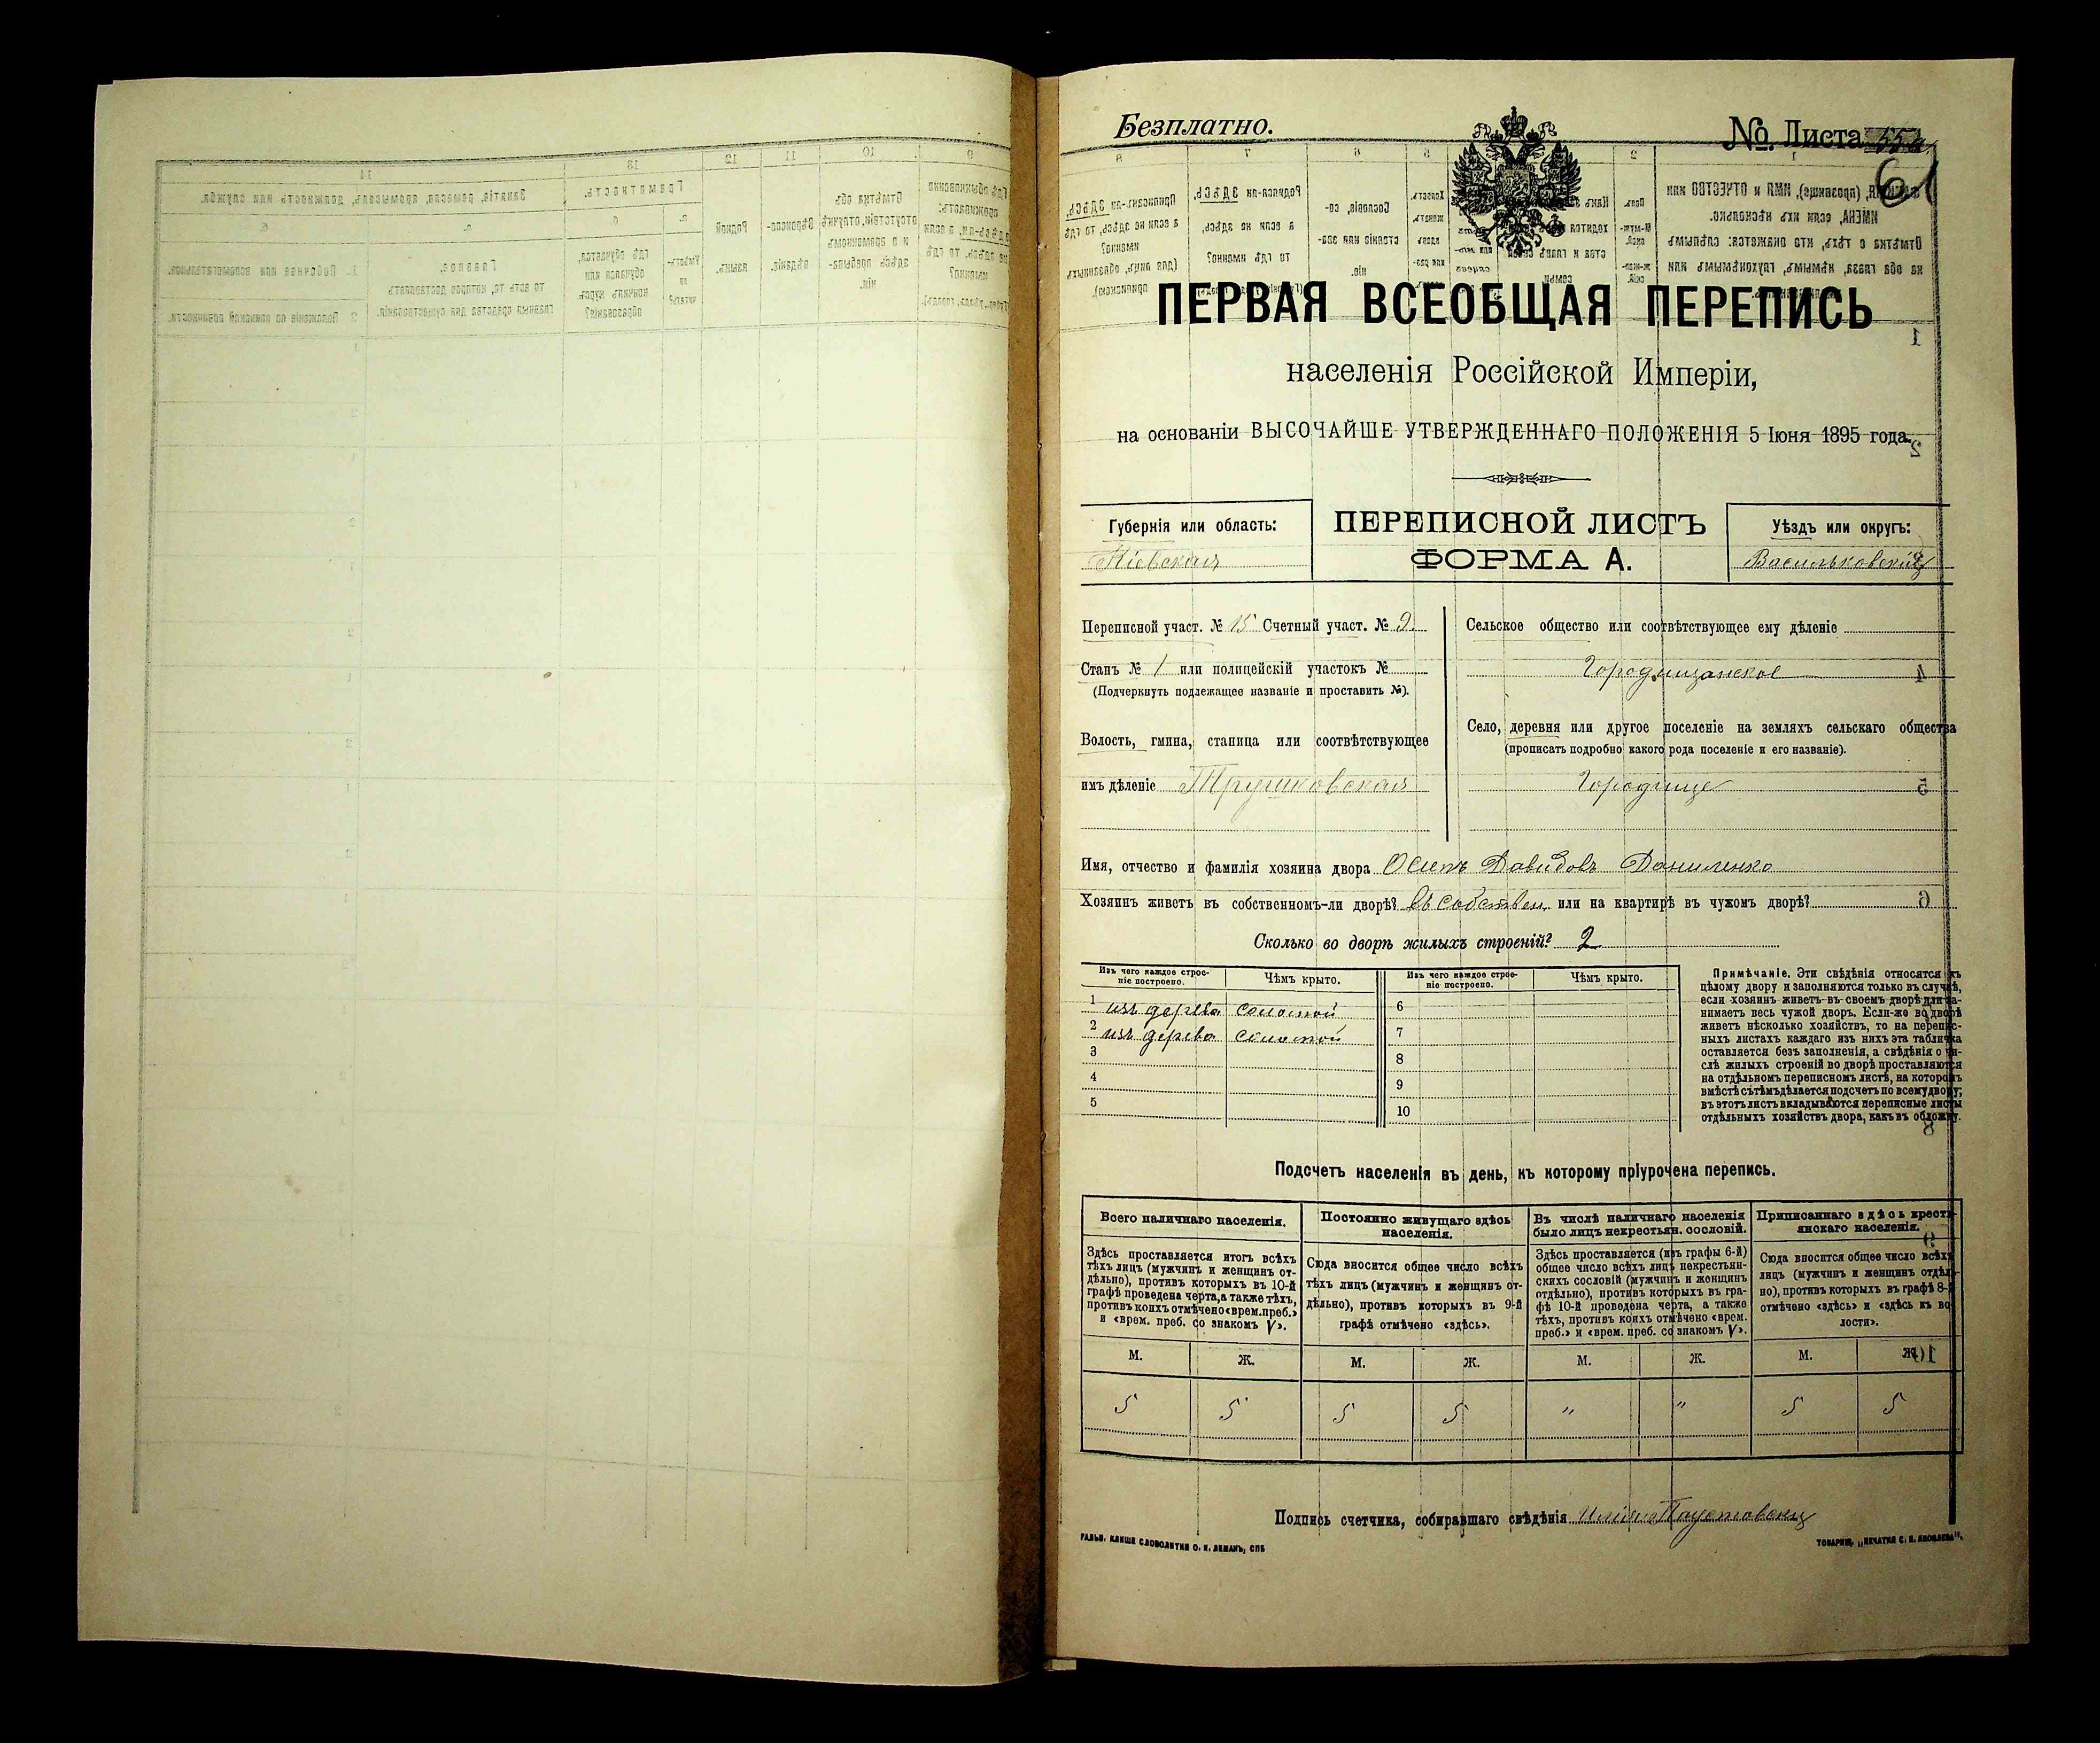 Безплатно.
№ Листа
61
ПЕРВАЯ ВСЕОБЩАЯ ПЕРЕПИСЬ
населенія Россійской Имперіи,
на основаніи ВЫСОЧАЙШЕ УТВЕРЖДЕННАГО ПОЛОЖЕНІЯ 5 Іюня 1895 года.
Губернія или область:
Кіевская
ПЕРЕПИСНОЙ ЛИСТЪ
ФОРМА А.
Уѣздъ или округъ:
Васильковскій
Переписной участ. № 15 Счетный участ. № 9
Станъ № 1 или полицейскій участокъ №
(Подчеркнуть подлежащее названіе и проставить №).
Волость, гмина, станица или соотвѣтствующее
имъ дѣленіе Трушковская
Сельское общество или соотвѣтствующее ему дѣленіе
Городищанское
Село, деревня или другое поселеніе на земляхъ сельскаго общества
(прописать подробно какого рода поселеніе и его названіе).
Городище
Имя, отчество и фамилія хозяина двора Осипъ Давидовъ Даниленко
Хозяинъ живетъ въ собственномъ-ли дворѣ? въ собствен. или на квартирѣ въ чужомъ дворѣ?
Сколько во дворѣ жилыхъ строеній? 2
Изъ чего каждое строе-
ніе построено.
Чѣмъ крыто.
Изъ чего каждое строе-
ніе построено.
Чѣмъ крыто.
1 изъ дерева соломой
2 изъ дерева соломой
3
4
5
6
7
8
9
10
Примѣчаніе. Эти свѣдѣнія относятся къ
цѣлому двору и заполняются только въ случаѣ,
если хозяинъ живетъ въ своемъ дворѣ или за-
нимаетъ весь чужой дворъ. Если-же во дворѣ
живетъ нѣсколько хозяйствъ, то на перепис-
ныхъ листахъ каждаго изъ нихъ эта табличка
оставляется безъ заполненія, а свѣдѣнія о чи-
слѣ жилыхъ строеній во дворѣ проставляются
на отдѣльномъ переписномъ листѣ, на которомъ
вмѣстѣ съ тѣмъ дѣлается подсчетъ по всему двору;
въ этотъ листъ вкладываются переписные листы
отдѣльныхъ хозяйствъ двора, какъ въ обложку.
Подсчетъ населенія въ день, къ которому пріурочена перепись.
Всего наличнаго населенія.
Здѣсь проставляется итогъ всѣхъ
тѣхъ лицъ (мужчинъ и женщинъ от-
дѣльно), противъ которыхъ въ 10-й
графѣ проведена черта, а также тѣхъ,
противъ коихъ отмѣчено «врем. преб.»
и «врем. преб. со знакомъ V».
Постоянно живущаго здѣсь
населенія.
Сюда вносится общее число всѣхъ
тѣхъ лицъ (мужчинъ и женщинъ от-
дѣльно), противъ которыхъ въ 9-й
графѣ отмѣчено «здѣсь».
Въ числѣ наличнаго населенія
было лицъ некрестьян. сословій.
Здѣсь проставляется (изъ графы 6-й)
общее число всѣхъ лицъ некрестьян-
скихъ сословій (мужчинъ и женщинъ
отдѣльно), противъ которыхъ въ гра-
фѣ 10-й проведена черта, а также
тѣхъ, противъ коихъ отмѣчено «врем.
преб.» и «врем. преб. со знакомъ V».
Приписаннаго здѣсь кресть-
янскаго населенія.
Сюда вносится общее число всѣхъ
лицъ (мужчинъ и женщинъ отдѣль-
но), противъ которыхъ въ графѣ 8-й
отмѣчено «здѣсь» и «здѣсь къ во-
лости».
М. Ж. М. Ж. М. Ж. М. Ж.
5 5 5 5 " " 5 5
Подпись счетчика, собиравшаго свѣдѣнія
ГАЛЬВ. КЛИШЕ СЛОВОЛИТНИ О. И. ЛЕМАНЪ, СПБ
ТОВАРИЩ. „ПЕЧАТНЯ С. П. ЯКОВЛЕВА".